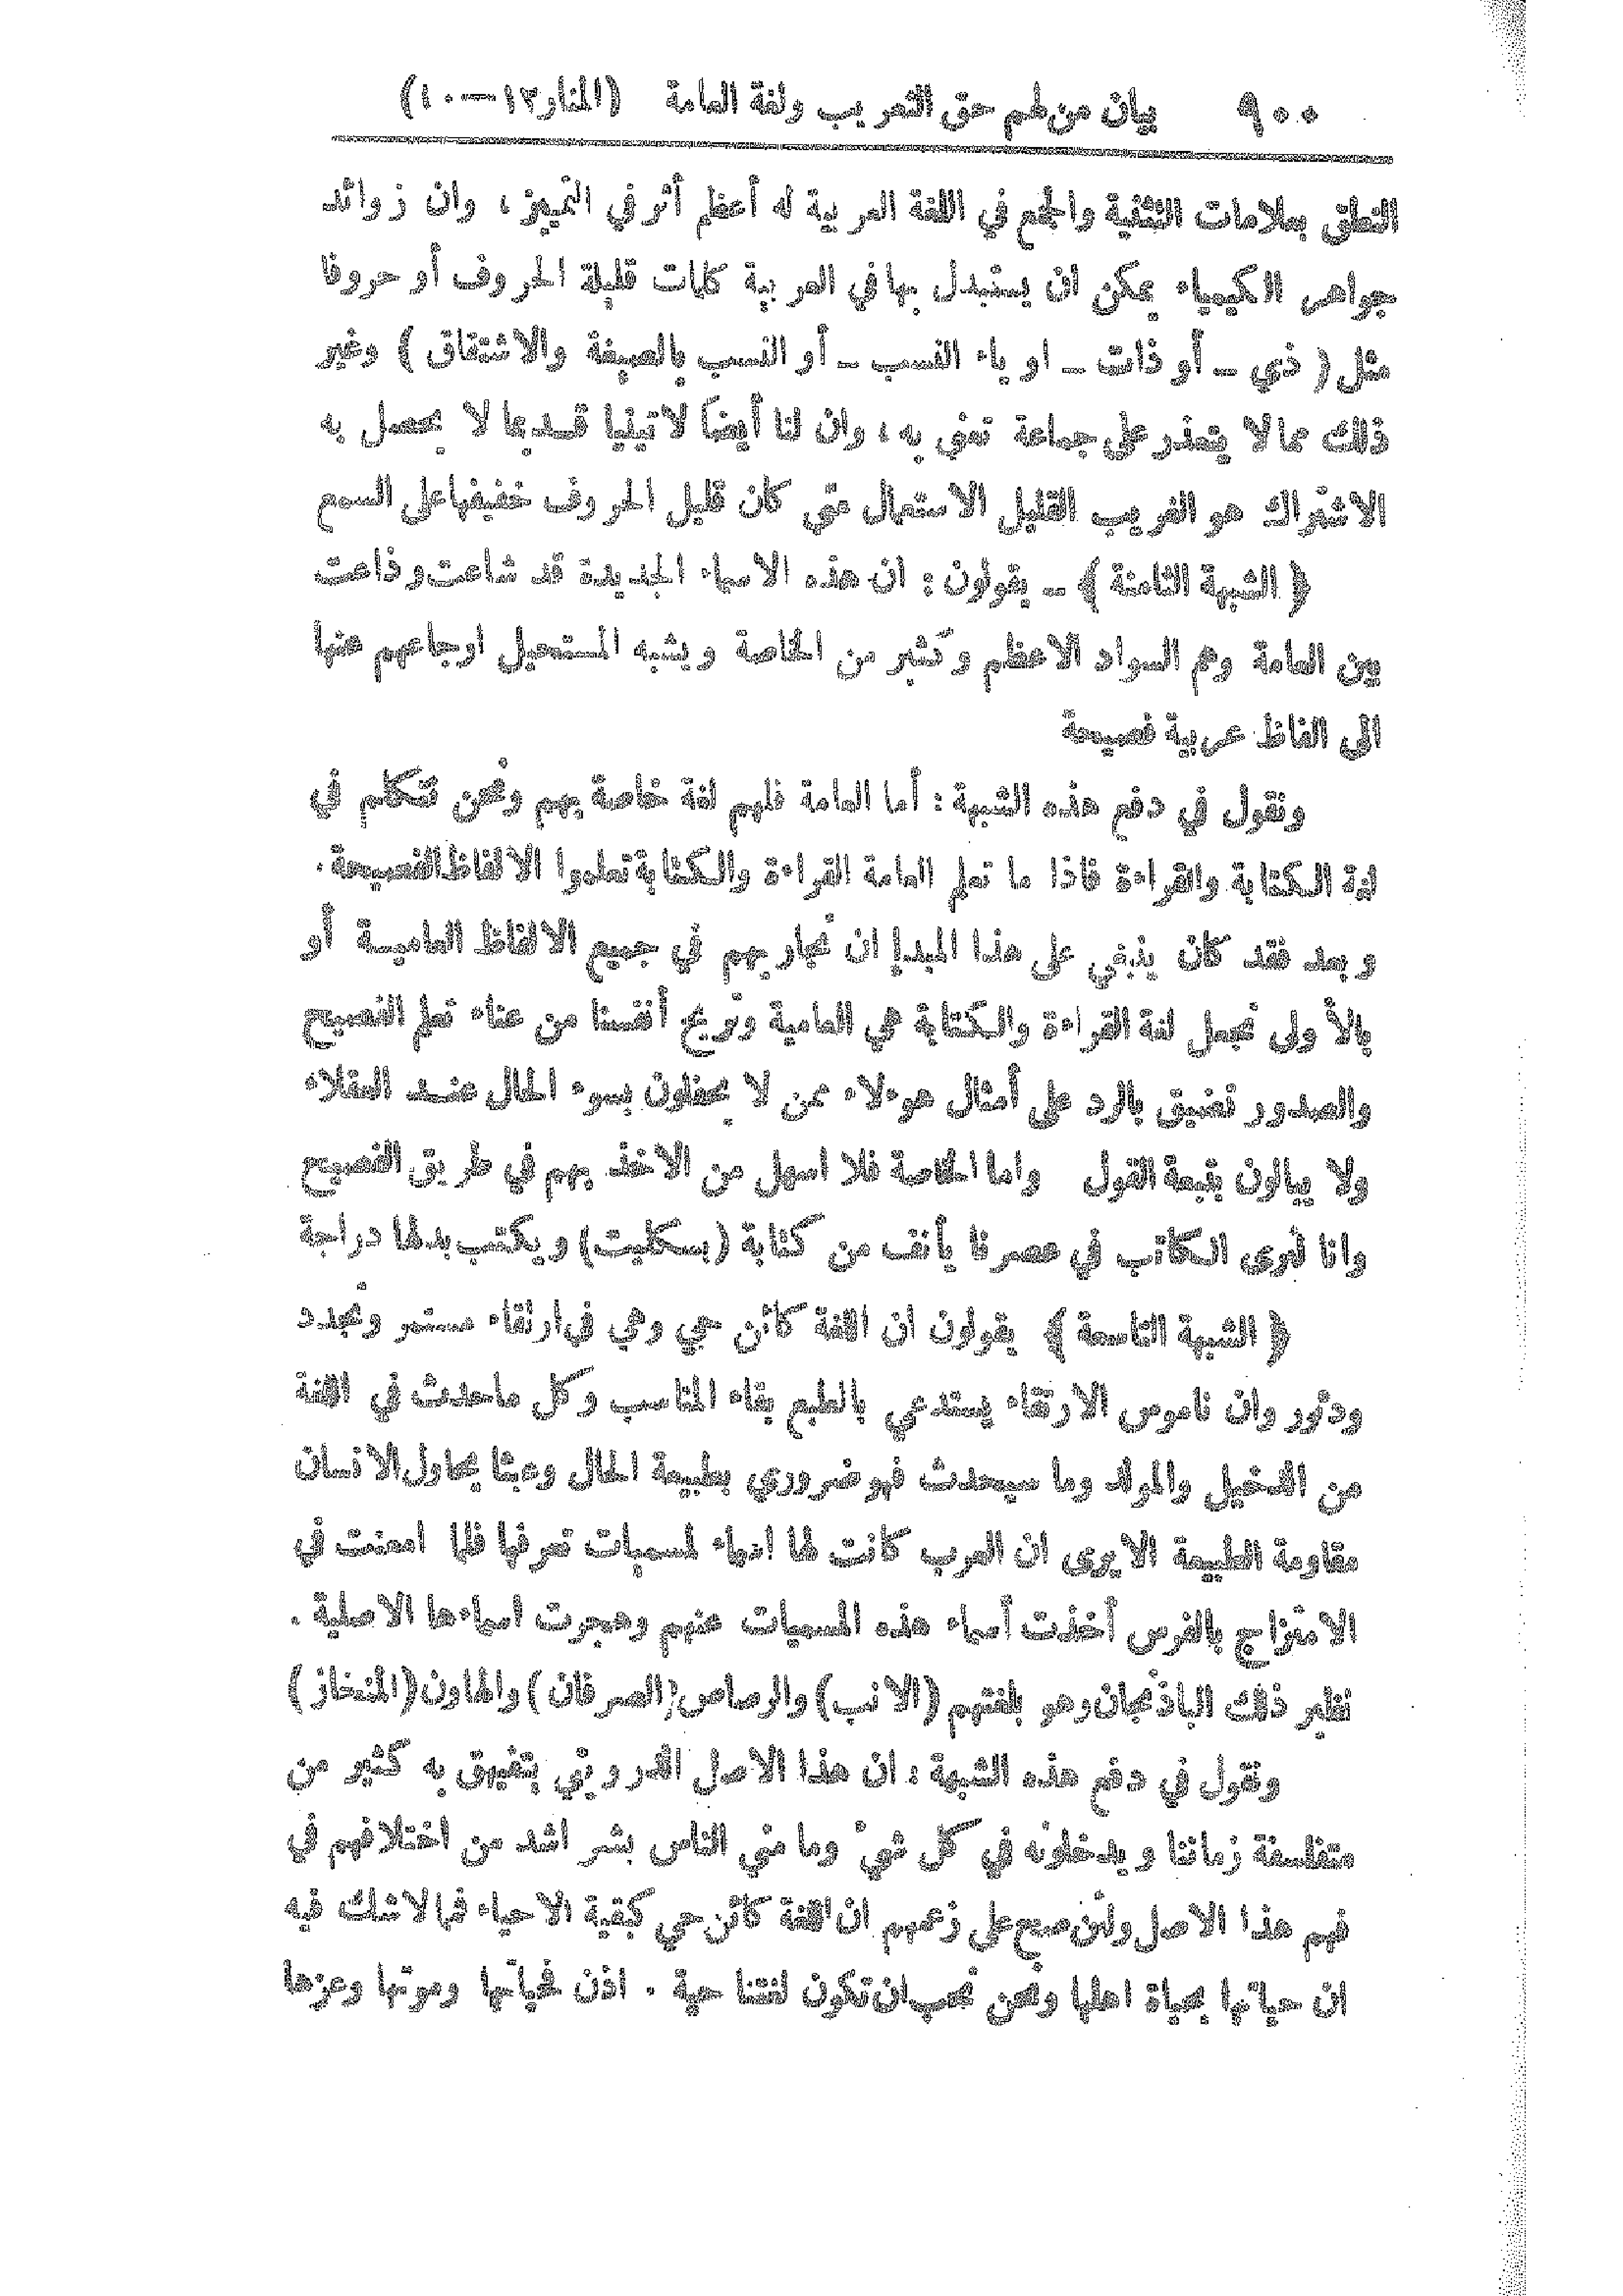 ٩٠٠ بيان من لهم حق التعريب ولغة العامة (المنار ١٢ــ١٠)
النطق بعلامات التثنية والجمع في اللغة العربية له أعظم أثر في التمييز ، وان زوائد
جواهر الكيمياء يمكن ان يستبدل بها في العربية كلمات قليلة الحروف أو حروفا
مثل ( ذي ــ أو ذات ــ او ياء النسب ــ أو النسب بالصيغة والاشتقاق ) وغير
ذلك مما لا يتعذر على جماعة تعنى به ، وان لنا أيضاً لاتينيا قديما لا يحصل به
الاشتراك هو الغريب القليل الاستعمال متى كان قليل الحروف خفيفها على السمع
﴿ الشبهة الثامنة ﴾ ــ يقولون : ان هذه الاسماء الجديدة قد شاعت وذاعت
بين العامة وهم السواد الاعظم وكثير من الخاصة ويشبه المستحيل ارجاعهم عنها
الى الفاظ عربية فصيحة
ونقول في دفع هذه الشبهة : أما العامة فلهم لغة خاصة بهم ونحن نتكلم في
لغة الكتابة والقراءة فاذا ما تعلم العامة القراءة والكتابة تعلموا الالفاظ الفصيحة .
وبعد فقد كان ينبغي على هذا المبدإ ان نجاريهم في جميع الالفاظ العامية أو
بالأولى نجعل لغة القراءة والكتابة هي العامية ونريح أنفسنا من عناء تعلم الفصيح
والصدور تضيق بالرد على أمثال هوءلاء ممن لا يحفلون بسوء الحال عند العقلاء
ولا يبالون بتبعة القول واما الخاصة فلا اسهل من الاخذ بهم في طريق الفصيح
وانا لنرى الكاتب في عصرنا يأنف من كتابة (بسكليت) ويكتب بدلها دراجة
﴿ الشبهة التاسعة ﴾ يقولون ان اللغة كائن حي وهي في ارتقاء مستمر وتجدد
ودثور وان ناموس الارتقاء يستدعي بالطبع بقاء المناسب وكل ماحدث في اللغة
من الدخيل والمولد وما سيحدث فهو ضروري بطبيعة الحال وعبثا يحاول الانسان
مقاومة الطبيعة الا يرى ان العرب كانت لها اسماء لمسميات تعرفها فلما امعنت في
الامتزاج بالفرس أخذت أسماء هذه المسميات عنهم وهجرت اسماءها الاصلية .
نظير ذلك الباذنجان وهو بلغتهم (الانب) والرصاص (الصرفان) والهاون (المنحاز)
ونقول في دفع هذه الشبهة : ان هذا الاصل الدرويني يتفيهق به كثير من
متفلسفة زماننا ويدخلونه في كل شيءٍ وما مني الناس بشر اشد من اختلافهم في
فهم هذا الاصل ولئن صح على زعمهم ان اللغة كائن حي كبقية الاحياء فمالاشك فيه
ان حياتها بحياة اهلها ونحن نحب ان تكون لغتنا حية . اذن فحياتها وموتها وعزها